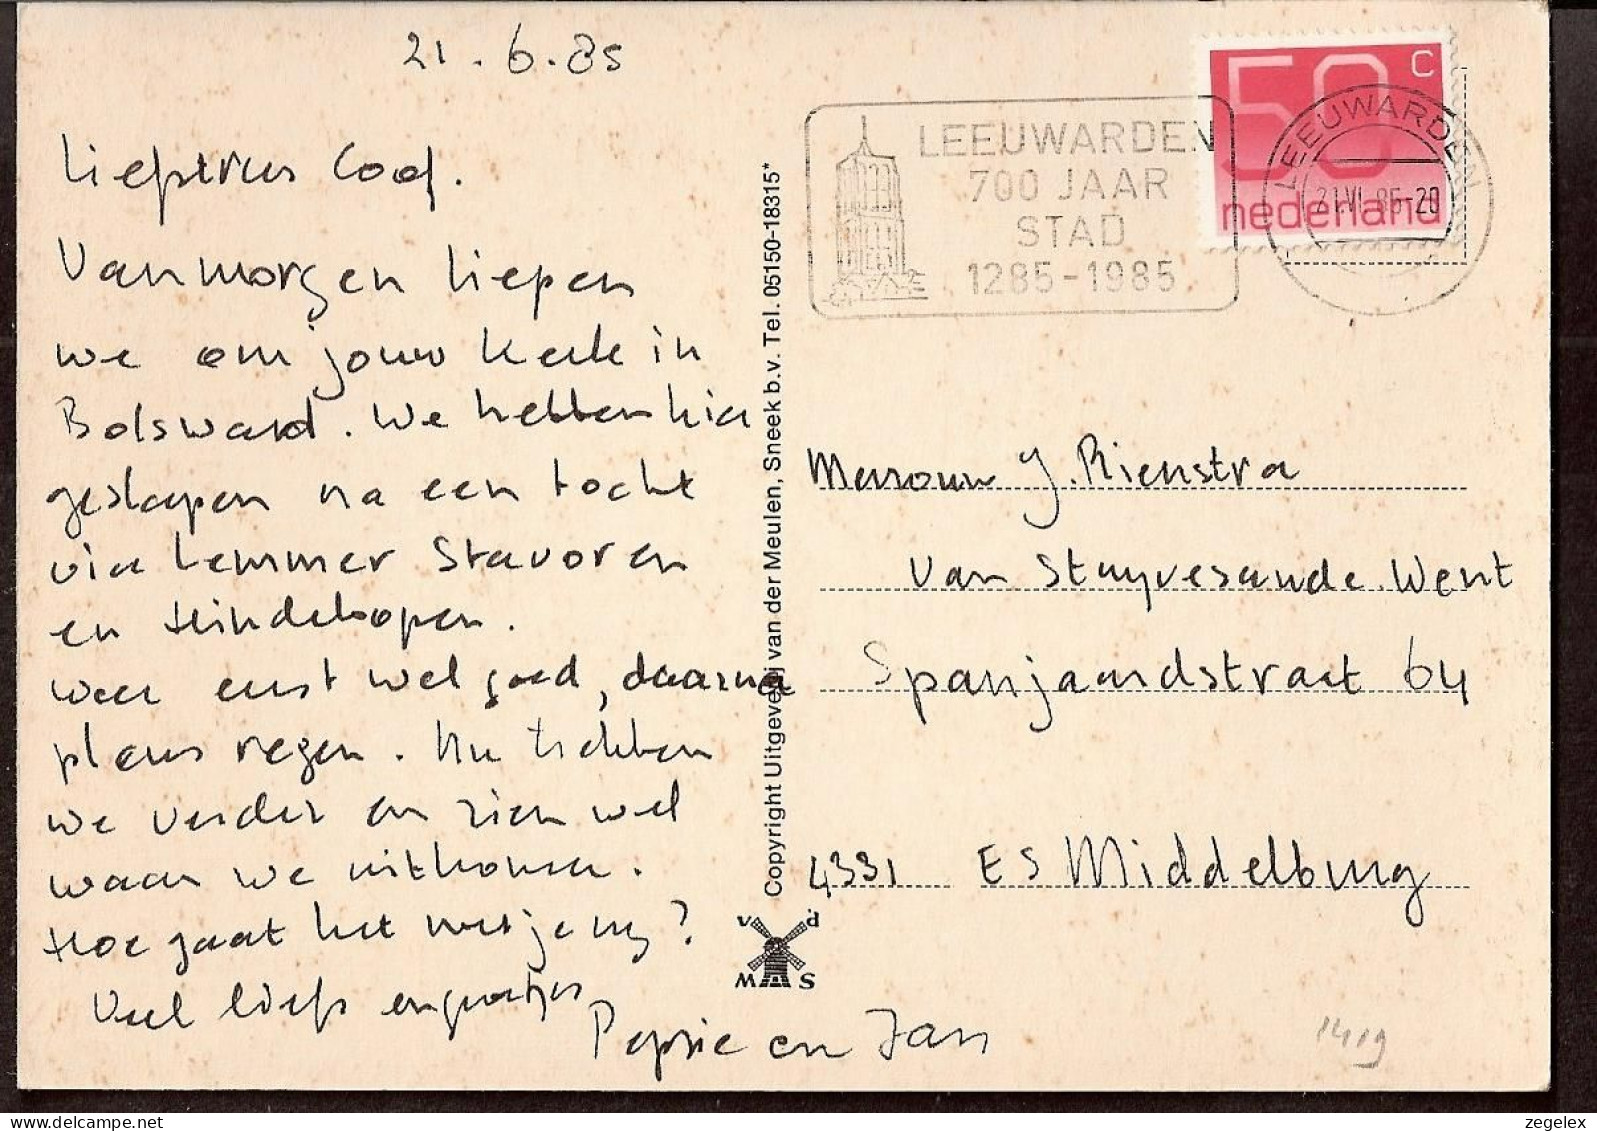 21.6.85
Vanmorgen liepen
we om jouw kerk in
Bolsward. We hebben hier
geslapen na een tocht
via Lemmer Stavoren
en Hindeloopen.
weer eerst wel goed, daarna
plens regen. Nu trekken
we verder en zien wel
waar we uitkomen.
Hoe gaat het met je
Veel liefs en groetjes
en Jan
Copyright Uitgeverij van der Meulen, Sneek b.v. Tel. 05150-18315*
v d
M S
LEEUWARDEN
700 JAAR
STAD
1285-1985
50 c
nederland
LEEUWARDEN
21.VI.85-20
Mevrouw J. Rienstra
Van Stuyvesande. Went
Spanjaardstraat 64
4331 ES Middelburg
1419
zegelex